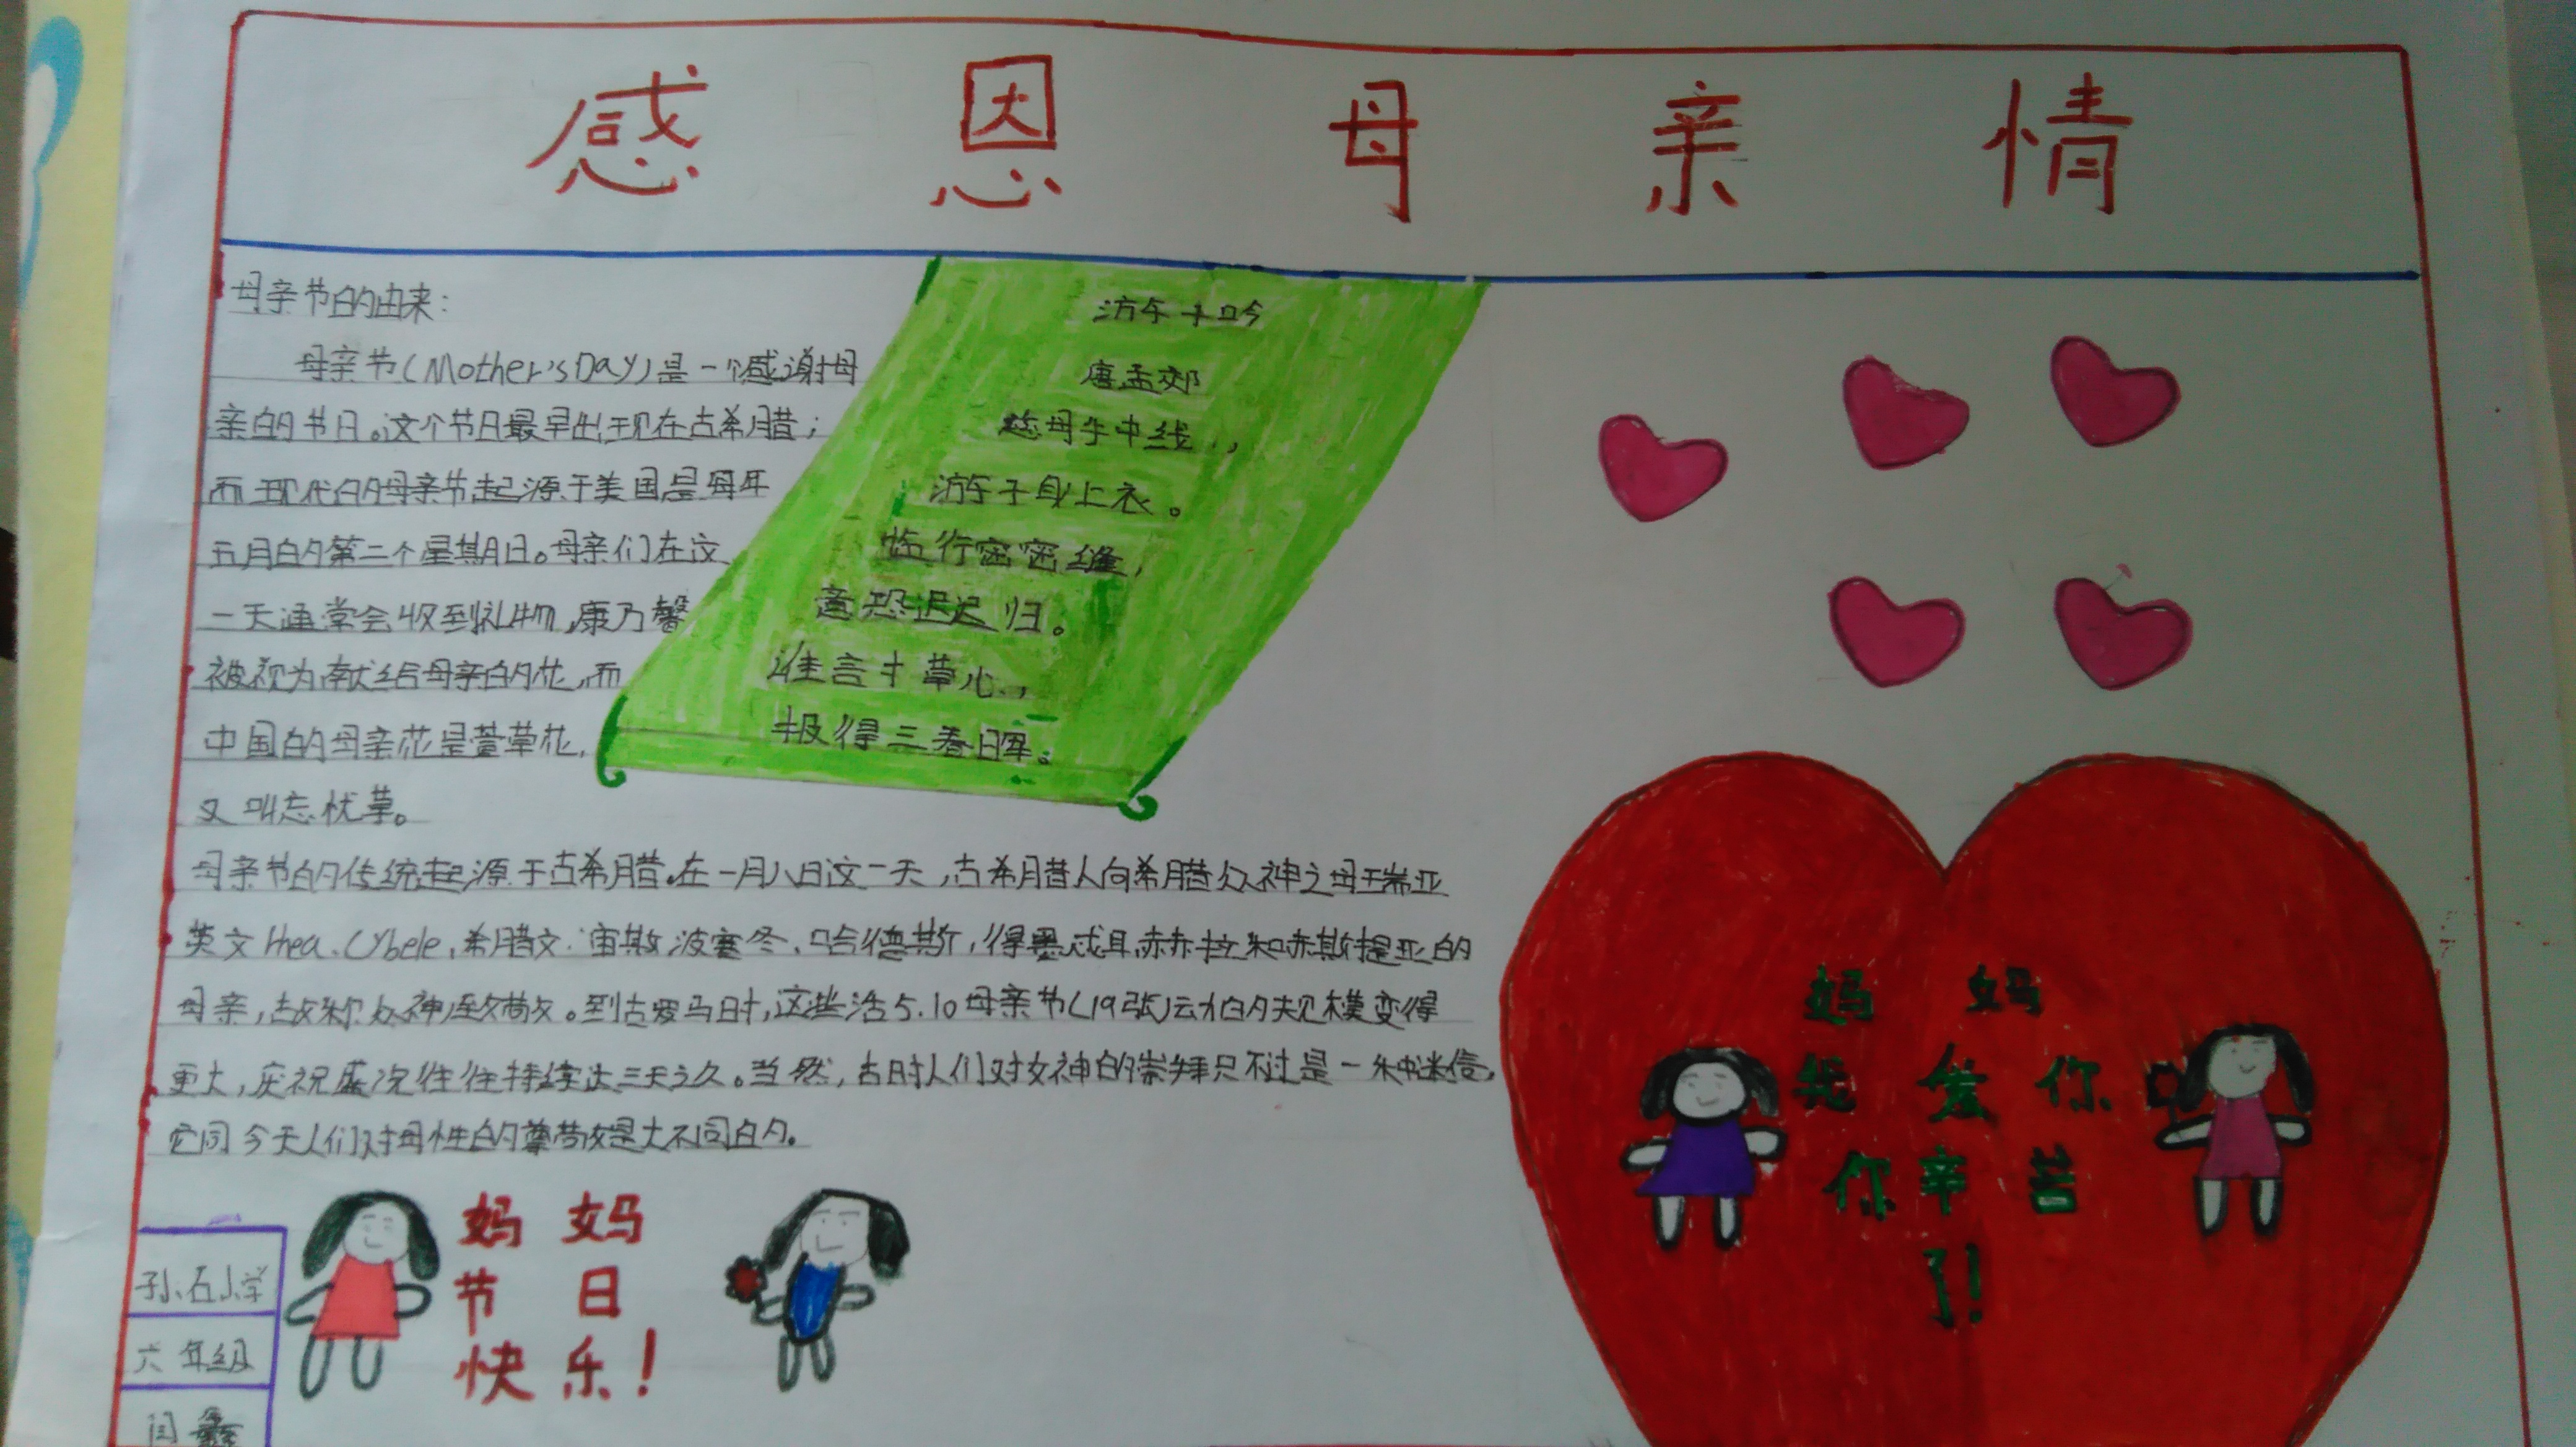 感恩母亲情
母亲节的由来:
母亲节(Mother's Day)是一个感谢母
亲的节日。这个节日最早出现在古希腊;
而现代的母亲节起源于美国是每年
五月的第二个星期日。母亲们在这
一天通常会收到礼物,康乃馨
被视为献给母亲的花,而
中国的母亲花是萱草花,
又叫忘忧草。
游子吟
唐孟郊
慈母手中线,
游子身上衣。
临行密密缝,
意恐迟迟归。
谁言寸草心,
报得三春晖。
母亲节的传统起源于古希腊。在一月八日这一天,古希腊人向希腊众神之母瑞亚
英文Rhea、Cybele,希腊文:宙斯波塞冬、哈德斯,得墨忒耳,赫拉和赫斯提亚的
母亲,故称众神致敬。到古罗马时,这些活5.10母亲节(19张)动的规模变得
更大,庆祝盛况往往持续达三天之久。当然,古时人们对女神的崇拜只不过是一种迷信,
它同今天人们对母性的尊敬是大不同的。
妈妈
节日
快乐!
妈妈
我爱你
你辛苦
了!
孙石小学
六年级
闫